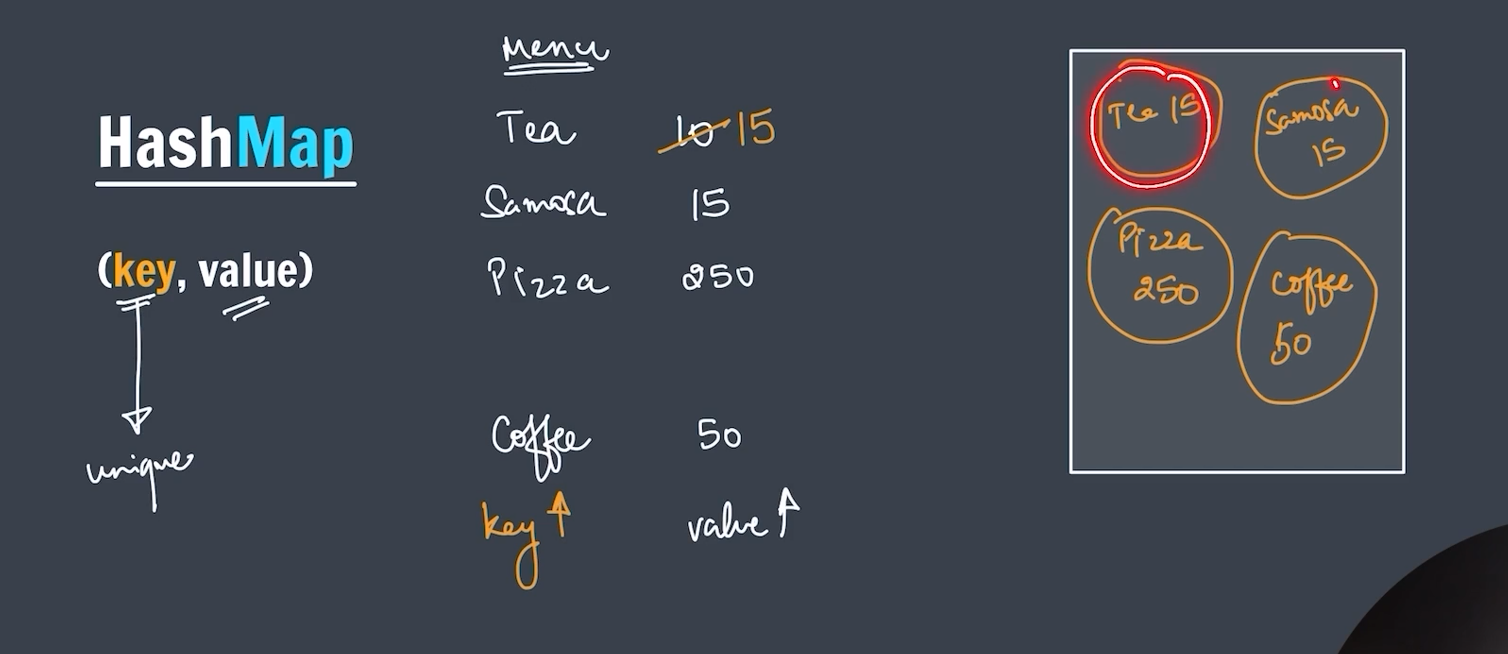 HashMap
(key, value)
unique
Menu
Tea 10 15
Samosa 15
Pizza 250
Coffee 50
key value
Tea 15
Samosa
15
Pizza
250
Coffee
50